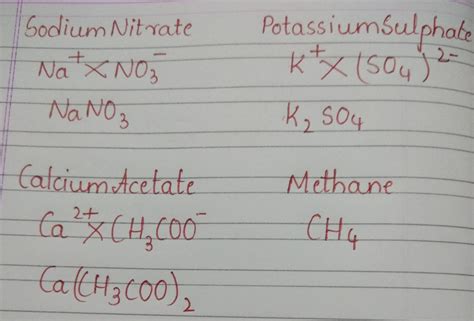 Sodium Nitrate
Na⁺ × NO₃⁻
NaNO₃
Potassium Sulphate
K⁺ × (SO₄)²⁻
K₂SO₄
Calcium Acetate
Ca²⁺ × CH₃COO⁻
Ca(CH₃COO)₂
Methane
CH₄